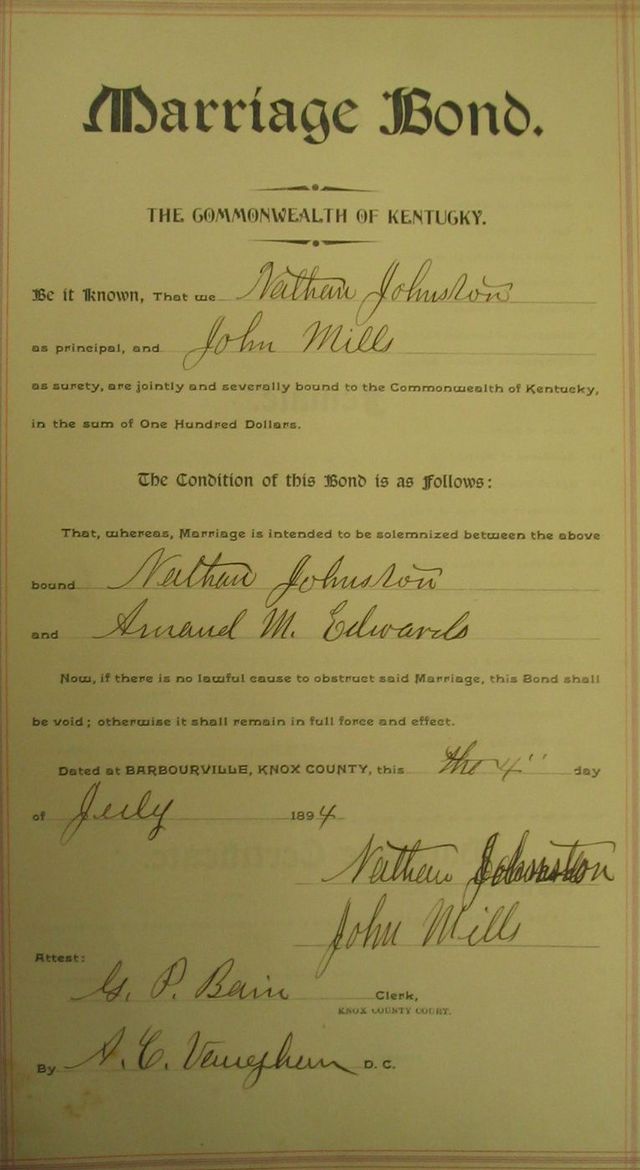 Marriage Bond.
THE COMMONWEALTH OF KENTUCKY.
Be it Known, That we Nathan Johnston
as principal, and John Mills
as surety, are jointly and severally bound to the Commonwealth of Kentucky,
in the sum of One Hundred Dollars.
The Condition of this Bond is as Follows:
That, whereas, Marriage is intended to be solemnized between the above
bound Nathan Johnston
and Amand M. Edwards
Now, if there is no lawful cause to obstruct said Marriage, this Bond shall
be void; otherwise it shall remain in full force and effect.
Dated at BARBOURVILLE, KNOX COUNTY, this the 4" day
of July 1894
Nathan Johnston
John Mills
Attest:
G. P. Bain Clerk,
KNOX COUNTY COURT.
By A. C. Vaughun D. C.